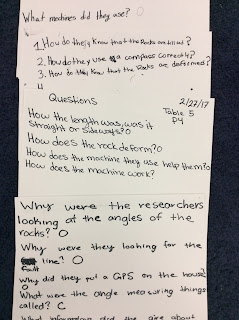 What machines did they use? O
1. How do they know that the Rocks are tilted?
2. How do they use a compass correctly?
3. How do they know that the Rocks are deformed?
4
Questions
2/22/17
Table 5
P4
How the length was, was it
straight or sideways? O
How does the rock deform? O
How does the machine they use help them? O
How does the machine work?
Why were the researchers
looking at the angles of the
rocks? O
Why were they looking for the
fault line? O
Why did they put a GPS on the house?
O
What were the angle measuring things
called? C
What information did the
about